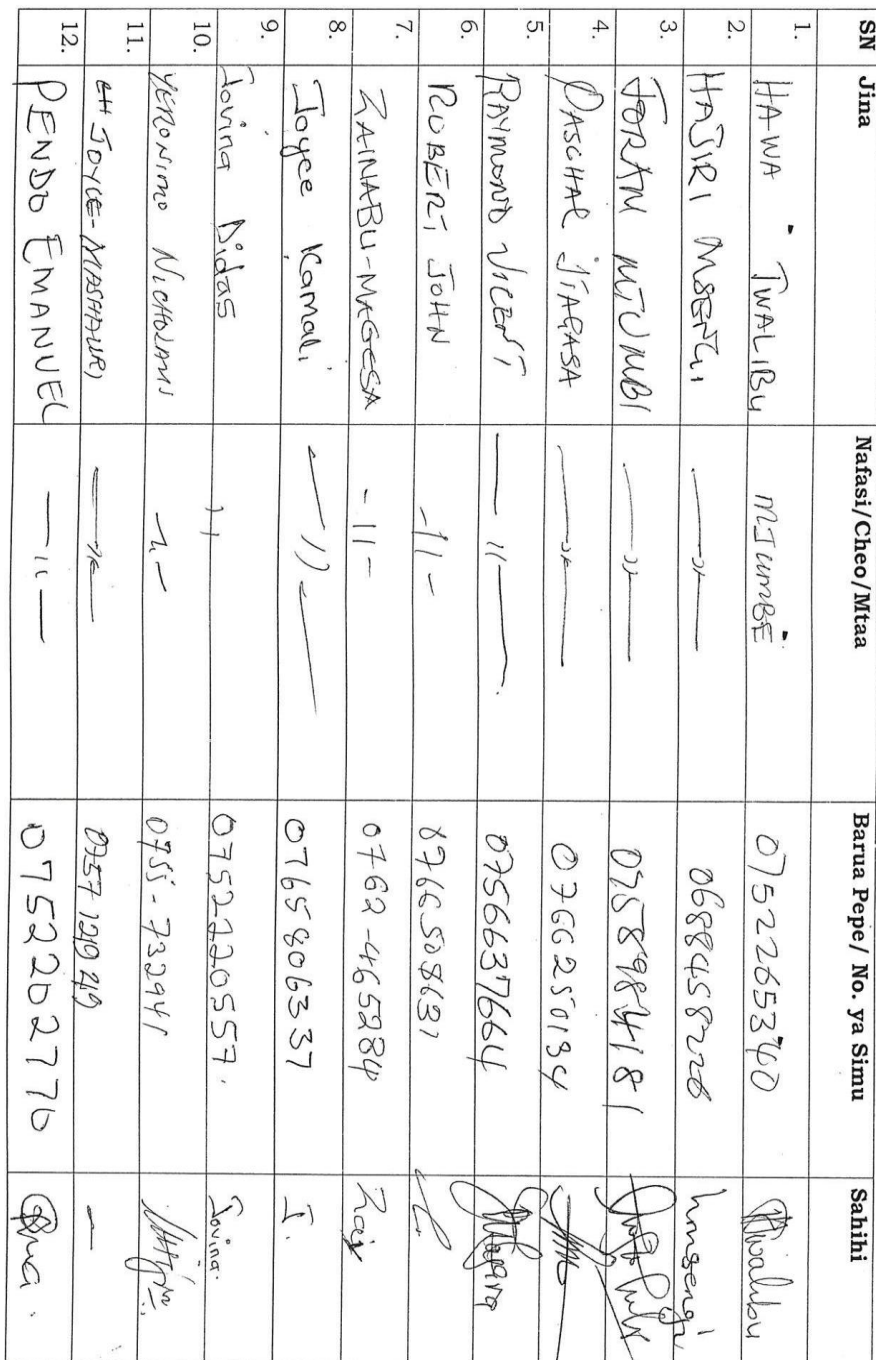 SN Jina Nafasi/Cheo/Mtaa Barua Pepe/ No. ya Simu Sahihi
1. HAWA TWALIBU MJUMBE 0752265340 Twalibu
2. HAJIRI MSENGI —〃— 0688458226 hmsengi
3. JORAM MJUMBI —〃— 0758984181
4. PASCHAL JIAGASA —〃— 0766250194
5. RAYMOND VICENT — 11 — 0756637664
6. ROBERT JOHN -11- 0766508631
7. ZAINABU-MAGESA -11- 0762-465284 Zai
8. Joyce Kamali — 11 — 0765806337 J.
9. Jovina Didas 11 0752220557. Jovina.
10. YERONIMO NICHOLAUS -〃- 0755-732941
11. JOYCE-MASHAURI —〃— —
12. PENDO EMANUEL — 11 — 0752202770